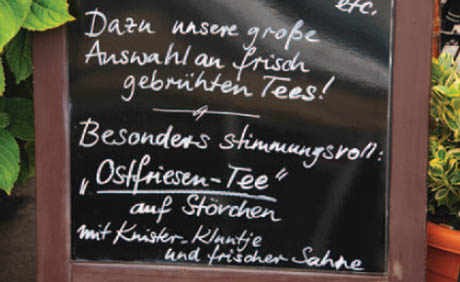 etc.
Dazu unsere große
Auswahl an frisch
gebrühten Tees!
Besonders stimmungsvoll:
„Ostfriesen-Tee“
auf Störchen
mit Knister-Kluntje
und frischer Sahne